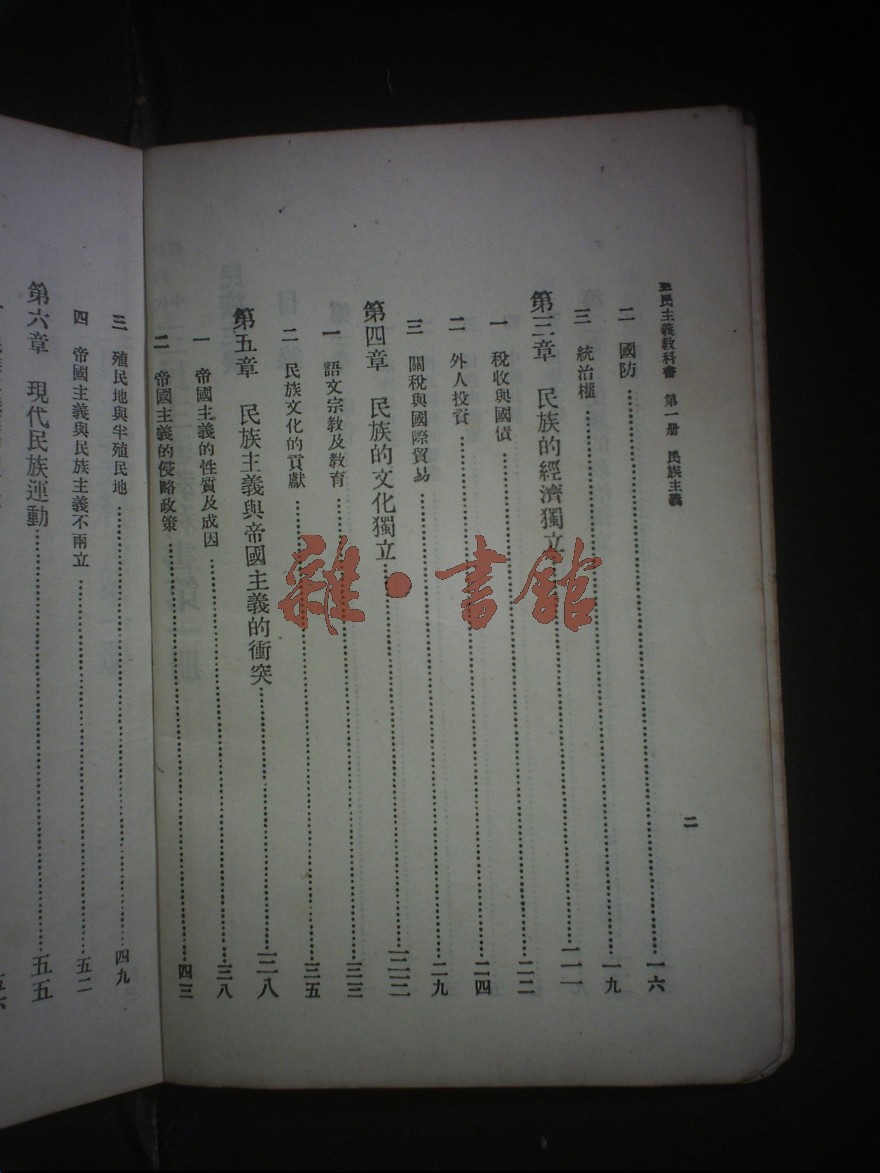 三民主義教科書 第一册 民族主義
二
二 國防 一六
三 統治權 一九
第三章 民族的經濟獨立
一 稅收與國債 二二
二 外人投資 二四
三 關稅與國際貿易 二九
第四章 民族的文化獨立
一 語文宗教及教育 三三
二 民族文化的貢獻 三五
第五章 民族主義與帝國主義的衝突 三八
一 帝國主義的性質及成因 三八
二 帝國主義的侵略政策 四三
三 殖民地與半殖民地 四九
四 帝國主義與民族主義不兩立 五二
第六章 現代民族運動 五五
雜·書館